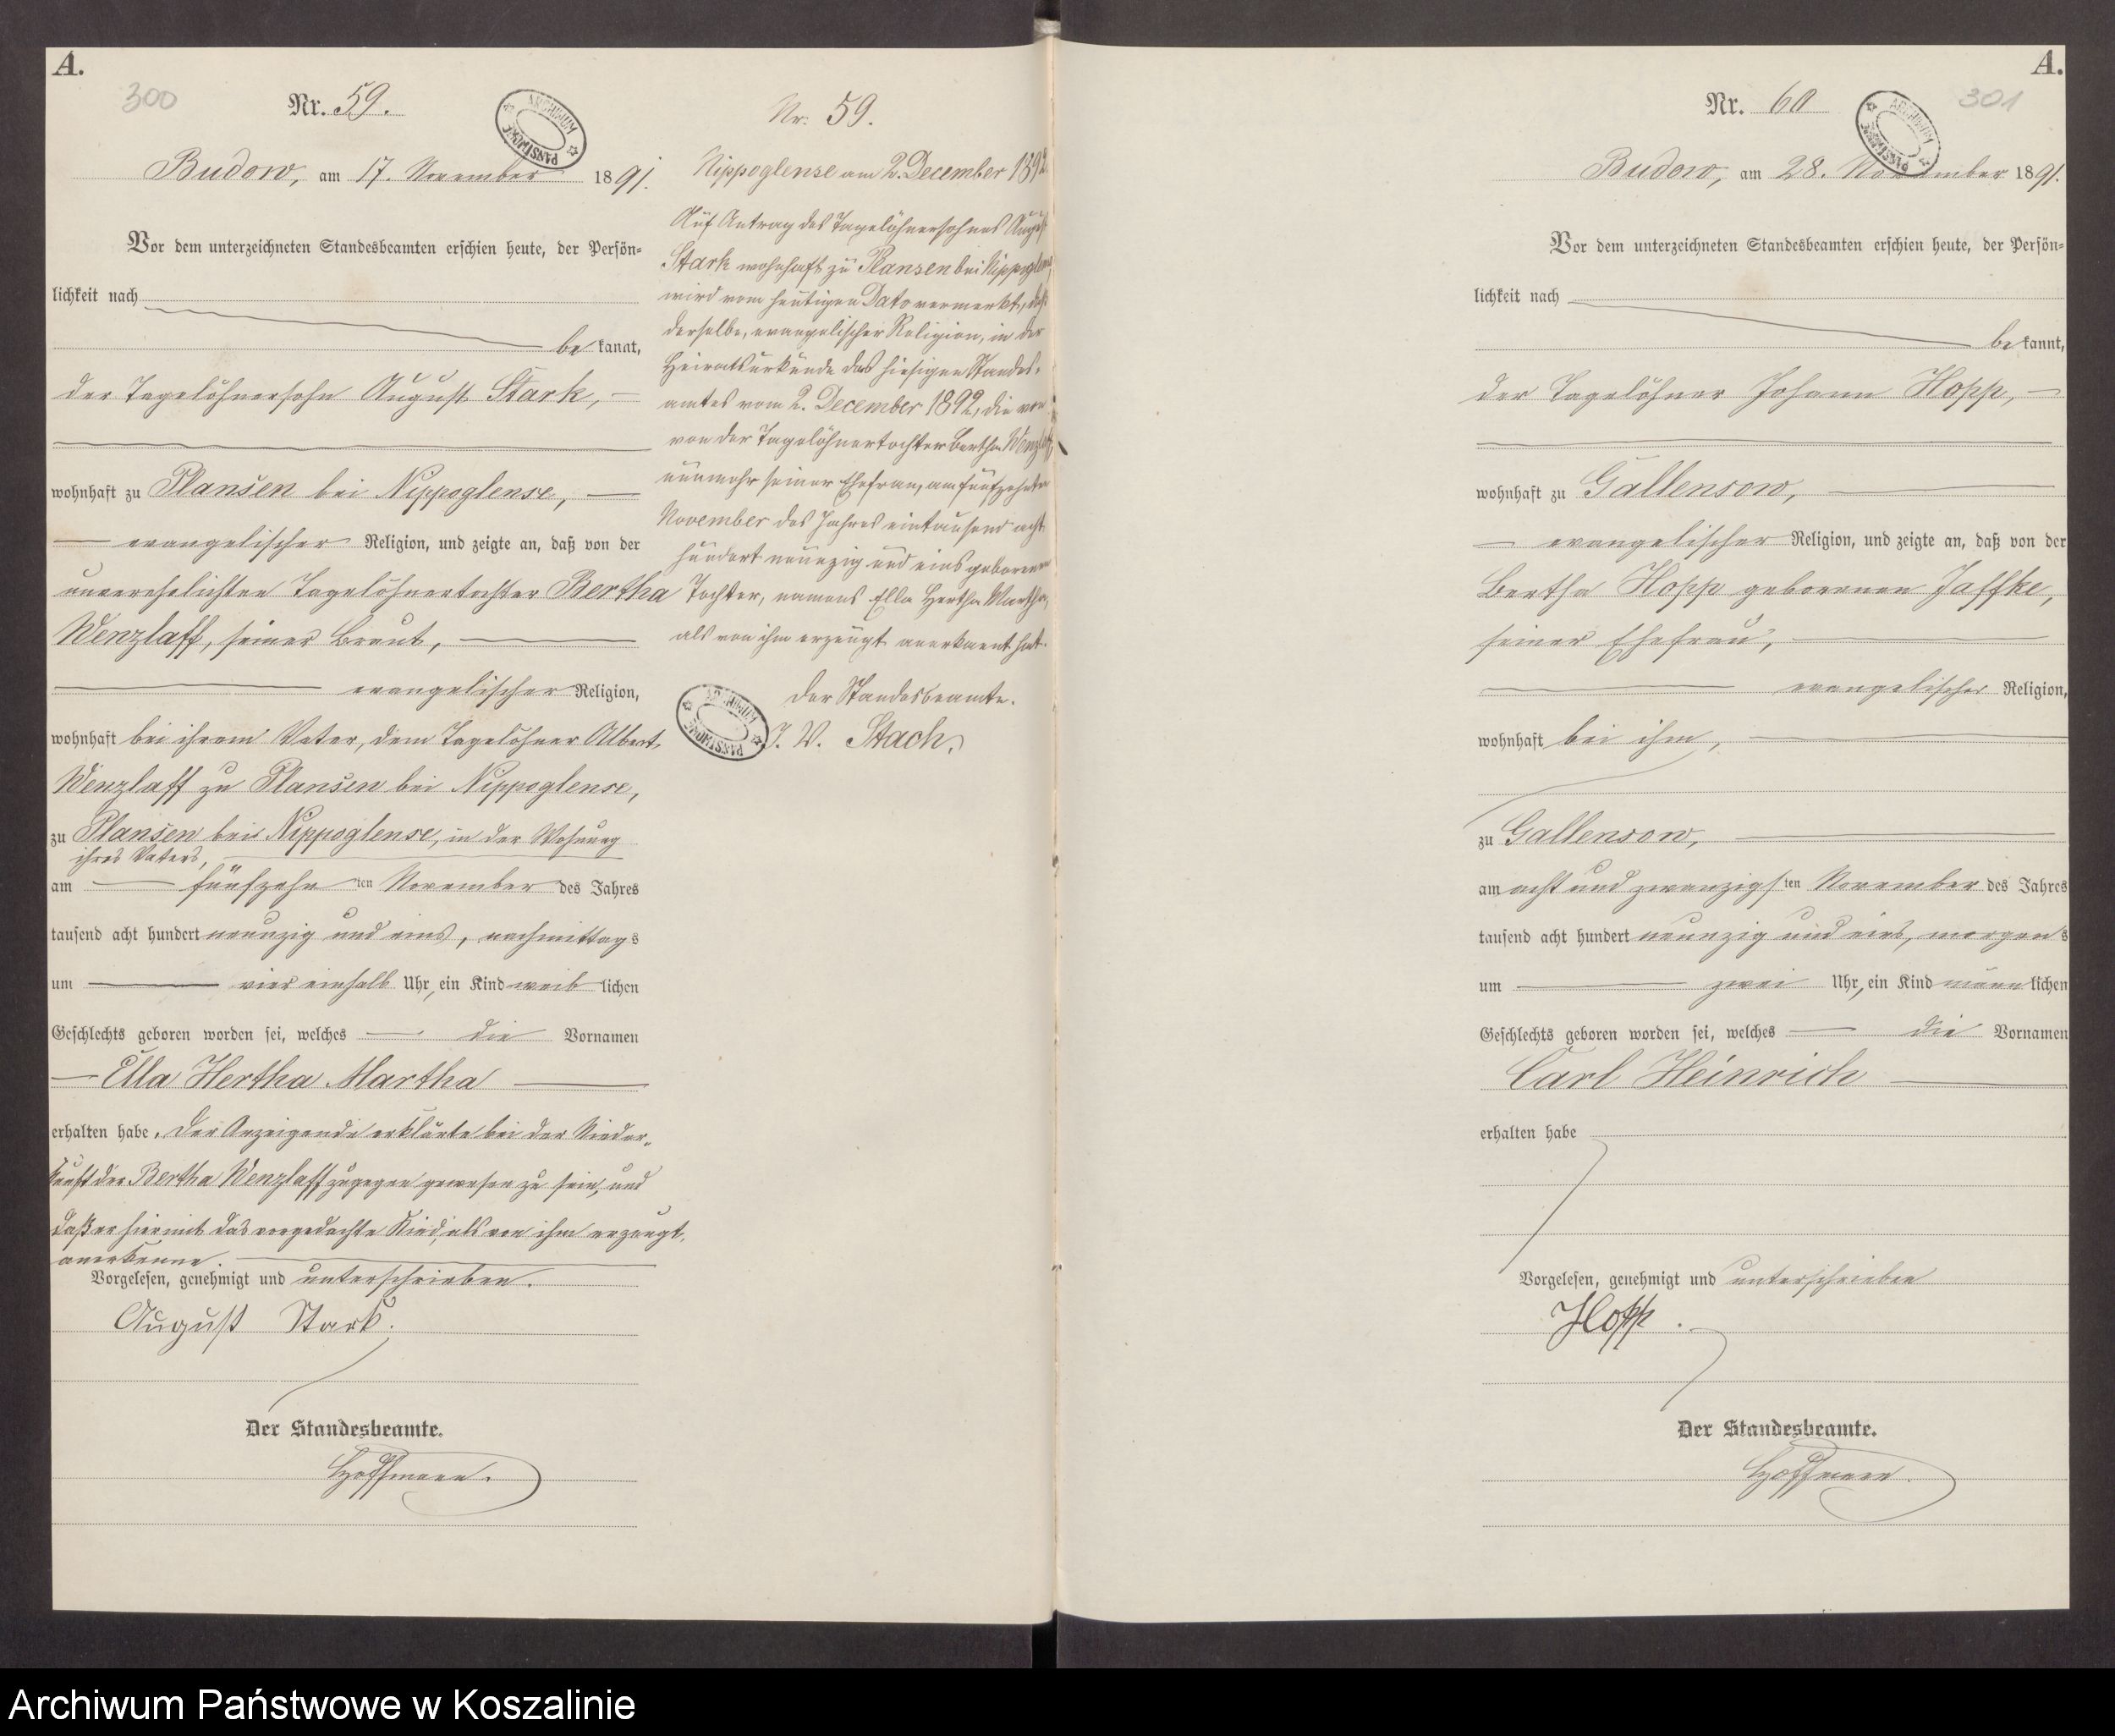 A.
300
Nr. 59.
Budow, am 17. November 1891.
Vor dem unterzeichneten Standesbeamten erschien heute, der Persön-
lichkeit nach
bekannt,
der Tagelöhnersohn August Stark,
wohnhaft zu Plansen bei Nippoglense,
evangelischer Religion, und zeigte an, daß von der
unverehelichten Tagelöhnertochter Bertha
Wenzlaff, seiner Braut,
evangelischer Religion,
wohnhaft bei ihrem Vater, dem Tagelöhner Albert
Wenzlaff zu Plansen bei Nippoglense,
zu Plansen bei Nippoglense, in der Wohnung
ihres Vaters,
am fünfzehnten November des Jahres
tausend acht hundert neunzig und eins, nachmittags
um vier einhalb Uhr, ein Kind weiblichen
Geschlechts geboren worden sei, welches die Vornamen
Ella Hertha Martha
erhalten habe. Der Anzeigende erklärte bei der Nieder-
kunft der Bertha Wenzlaff zugegen gewesen zu sein, und
daß er hiermit das vorgedachte Kind, als von ihm erzeugt,
anerkenne.
Vorgelesen, genehmigt und unterschrieben.
August Stark.
Der Standesbeamte.
Hoffmann.
Nr. 59.
Nippoglense am 2. December 1892
Auf Antrag des Tagelöhnersohnes August
Stark wohnhaft zu Plansen bei Nippoglense
wird vom heutigen Dato vermerkt, daß
derselbe, evangelischer Religion, in der
Heiratsurkunde des hiesigen Standes-
amtes vom 2. December 1892, die von
von der Tagelöhnertochter Bertha Wenzlaff,
nunmehr seiner Ehefrau, am fünfzehnten
November des Jahres eintausend acht
hundert neunzig und eins geborenen
Tochter, namens Ella Hertha Martha,
als von ihm erzeugt anerkannt hat.
Der Standesbeamte.
J. V. Stach.
ARCHIWUM PAŃSTWOWE
A.
301
Nr. 60
Budow, am 28. November 1891.
Vor dem unterzeichneten Standesbeamten erschien heute, der Persön-
lichkeit nach
bekannt,
der Tagelöhner Johann Hopp,
wohnhaft zu Gallensow,
evangelischer Religion, und zeigte an, daß von der
Bertha Hopp geborenen Jaffke,
seiner Ehefrau,
evangelischer Religion,
wohnhaft bei ihm,
zu Gallensow,
am acht und zwanzigsten November des Jahres
tausend acht hundert neunzig und eins, morgens
um zwei Uhr, ein Kind männlichen
Geschlechts geboren worden sei, welches die Vornamen
Carl Heinrich
erhalten habe
Vorgelesen, genehmigt und unterschrieben
Hopp.
Der Standesbeamte.
Hoffmann.
Archiwum Państwowe w Koszalinie